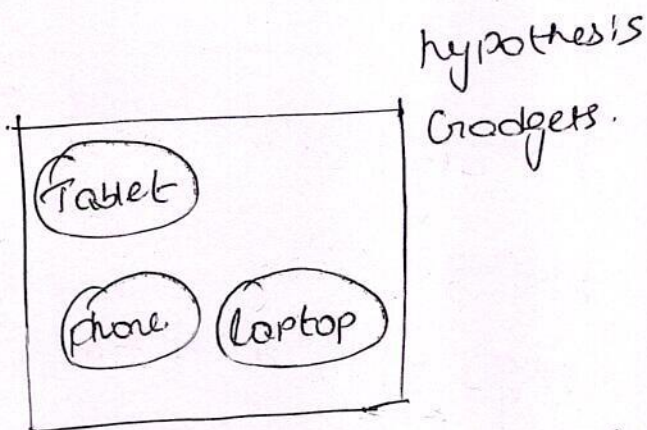 hypothesis
Gadgets.
Tablet
phone.
laptop